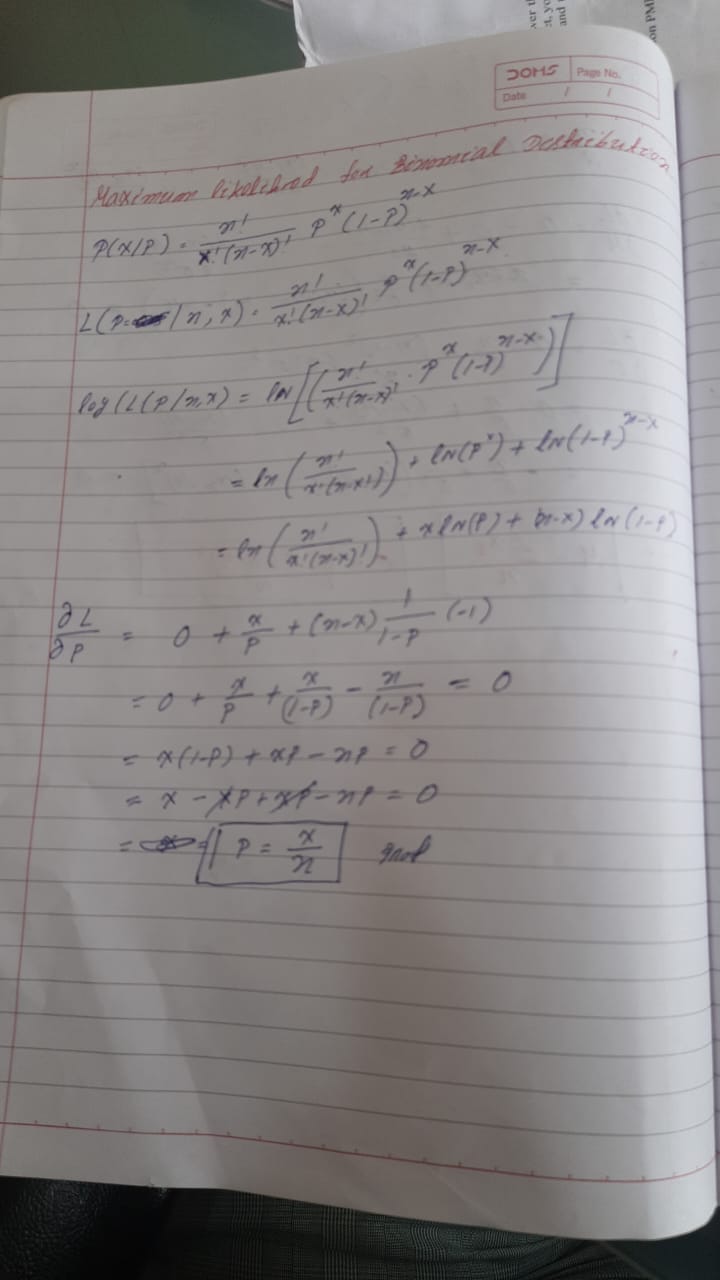 on PMF
and
DOMS Page No.
Date / /
Maximum likelihood for Binomial Distribution
P(x/P) = n!/x!(n-x)! P^x (1-P)^n-x
L(P= / n, x) = n!/x!(n-x)! P^x (1-P)^n-x
log(L(P/n,x) = ln[(n!/x!(n-x)! · P^x (1-P)^n-x)]
= ln(n!/x!(n-x)!) + ln(P^x) + ln(1-P)^n-x
= ln(n!/x!(n-x)!) + x ln(P) + (n-x) ln(1-P)
∂L/∂P = 0 + x/P + (n-x) 1/1-P (-1)
= 0 + x/P + x/(1-P) - n/(1-P) = 0
= x(1-P) + xP - nP = 0
= x - xP + xP - nP = 0
= P = x/n